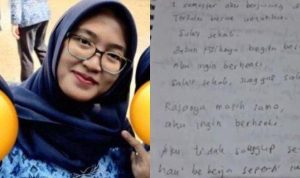 1 semester aku berjuang di
Terlalu berat
Sulit sekali.
begitu be
Aku ingin berhenti.
Sulit sekali, sungguh su
Rasanya masih sama,
aku ingin berhenti
Aku tidak sanggup se
hari bekerja seperti in